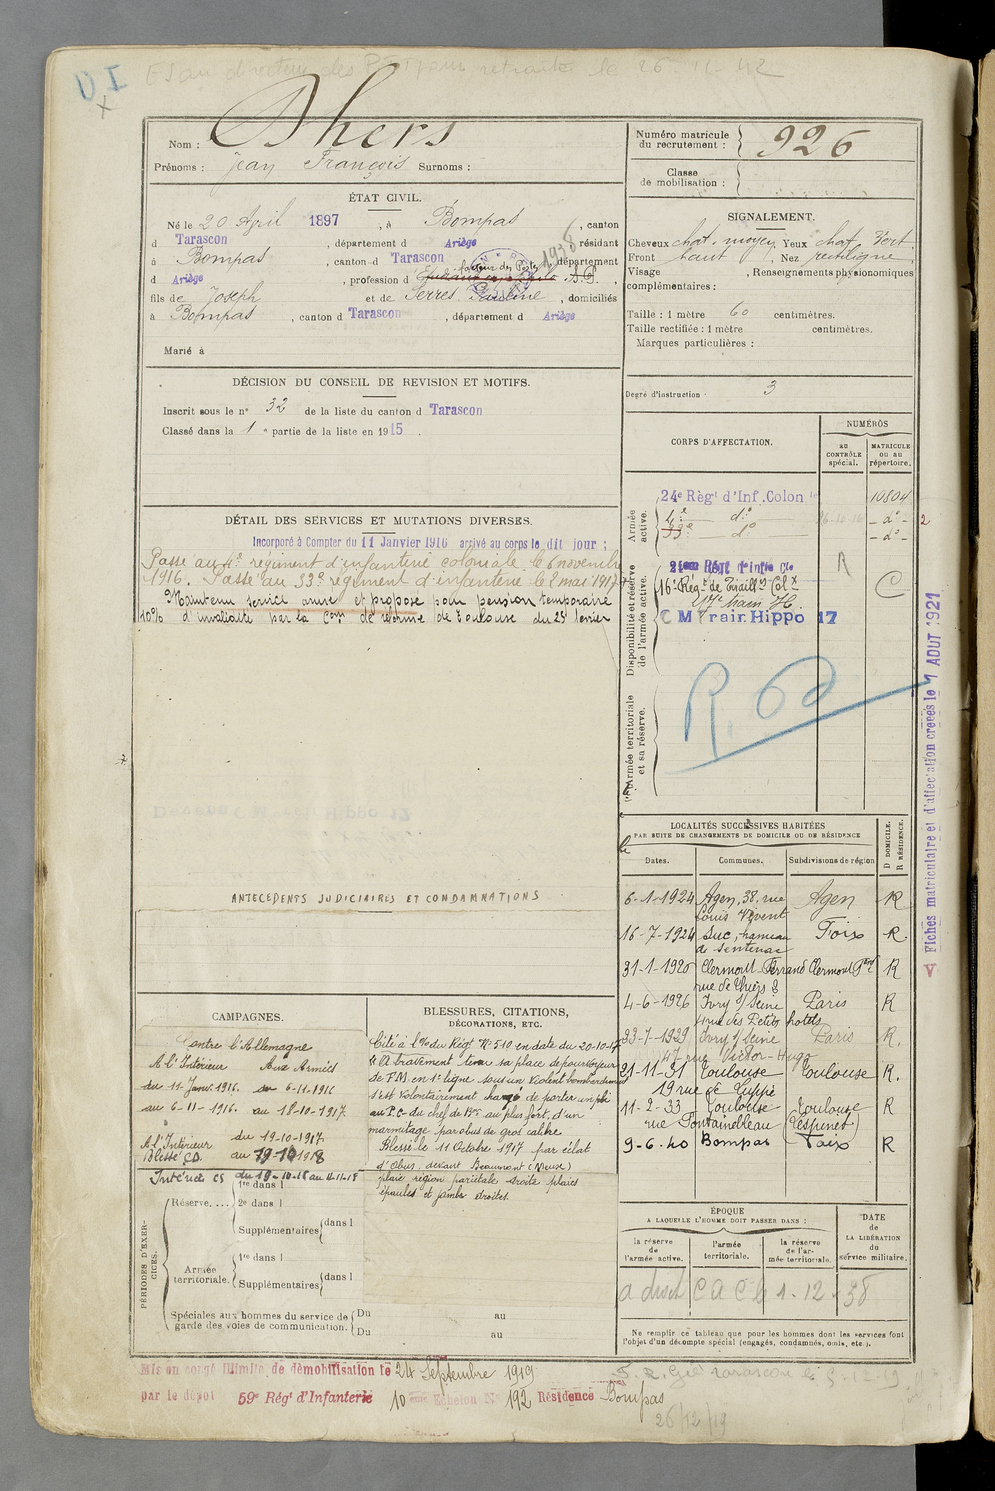 D I
des retraite le 26-11-42
Nom : Dhers
Prénoms : Jean François Surnoms :
Numéro matricule du recrutement : 926
Classe de mobilisation :
ÉTAT CIVIL.
Né le 20 April 1897, à Bompas, canton
d Tarascon, département d Ariège résidant
à Bompas, canton d Tarascon, département
d Ariège, profession d facteur des Postes S.P.
1938
fils de Joseph et de Serres, Pauline, domiciliés
à Bompas, canton d Tarascon, département d Ariège
Marié à
SIGNALEMENT.
Cheveux chat. moyen Yeux chat. Vert
Front haut, Nez rectiligne
Visage, Renseignements physionomiques
complémentaires :
Taille : 1 mètre 60 centimètres.
Taille rectifiée : 1 mètre centimètres.
Marques particulières :
Degré d'instruction : 3
DÉCISION DU CONSEIL DE REVISION ET MOTIFS.
Inscrit sous le n° 32 de la liste du canton d Tarascon
Classé dans la 1e partie de la liste en 1915.
DÉTAIL DES SERVICES ET MUTATIONS DIVERSES.
Incorporé à Compter du 11 Janvier 1916 arrivé au corps le dit jour ;
Passé au 4e régiment d'infanterie coloniale le 6 novembre
1916. Passé au 33e régiment d'infanterie le 8 mai 1917
Maintenu service armé et proposé pour pension temporaire
10% d'invalidité par la Com de réforme de Toulouse du 25 février
CORPS D'AFFECTATION.
NUMÉROS
au CONTRÔLE spécial.
MATRICULE ou au répertoire.
Armée active.
24e Règt d'Inf. Colon 10804
4e d° 26-12-16 - d° - 2
33e d° - d° -
Disponibilité et réserve de l'armée active.
16e Règt de Tiraill. Col.x
17e train H.
C M Train Hippo 17
R
C
Armée territoriale et sa réserve.
Fiches matriculaire et d'affectation créées le 1 AOUT 1921
V
LOCALITÉS SUCCESSIVES HABITÉES
PAR SUITE DE CHANGEMENTS DE DOMICILE OU DE RÉSIDENCE
Dates. Communes. Subdivisions de région D DOMICILE. R RÉSIDENCE.
6-1-1924 Agen, 38, rue Louis Vivent Agen R
16-7-1924 Suc, hameau de Sentenac Foix R.
31-1-1926 Clermont Ferrand rue de Thiers 8 Clermont Fd R
4-6-1926 Ivry s/ Seine 4 rue des Petits hotels Paris R
33-7-1929 Ivry s/ Seine 47 rue Victor-Hugo Paris R.
21-11-31 Toulouse 19 rue de Cuppé Toulouse R.
11-2-33 Toulouse rue Fontainebleau Toulouse (Lespinet) R
9-6-40 Bompas Foix R
ANTECEDENTS JUDICIAIRES ET CONDAMNATIONS
CAMPAGNES.
Contre l'Allemagne
A l'Intérieur Aux Armées
du 11 Janv. 1916. au 6-11-1916
au 6-11-1916. au 18-10-1917
A l'Intérieur du 19-10-1917
Blessé CD au 19-10-1918
Intérieur CS du 19-10-18 au 11-11-18
BLESSURES, CITATIONS, DÉCORATIONS, ETC.
Cité à l'o/ du Règt N° 510 en date du 20-10-17
"A bravement tenu sa place de pourvoyeur
de F.M. en 1e ligne sous un violent bombardement
s'est volontairement chargé de porter un pli
au P.C. du chef de Bon au plus fort d'un
marmitage par obus de gros calibre
Blessé le 11 Octobre 1917 par éclat
d'obus, devant Beaumont (Meuse)
plaie région pariétale droite plaies
épaules et jambe droites.
PÉRIODES D'EXERCICES.
Réserve.... 1re dans l
2e dans l
Supplémentaires dans l
Armée territoriale. 1re dans l
Supplémentaires dans l
Spéciales aux hommes du service de garde des voies de communication. Du au
Du au
ÉPOQUE
A LAQUELLE L'HOMME DOIT PASSER DANS :
la réserve de l'armée active.
l'armée territoriale.
la réserve de l'armée territoriale.
DATE de LA LIBÉRATION du service militaire.
a droit C A C le 1-12-38
Ne remplir ce tableau que pour les hommes dont les services font
l'objet d'un décompte spécial (engagés, condamnés, omis, etc.).
Mis en congé illimité de démobilisation le 24 Septembre 1919
par le dépôt 59e Règt d'Infanterie 10 eme Echelon N° 192 Résidence Bompas
26/12/19